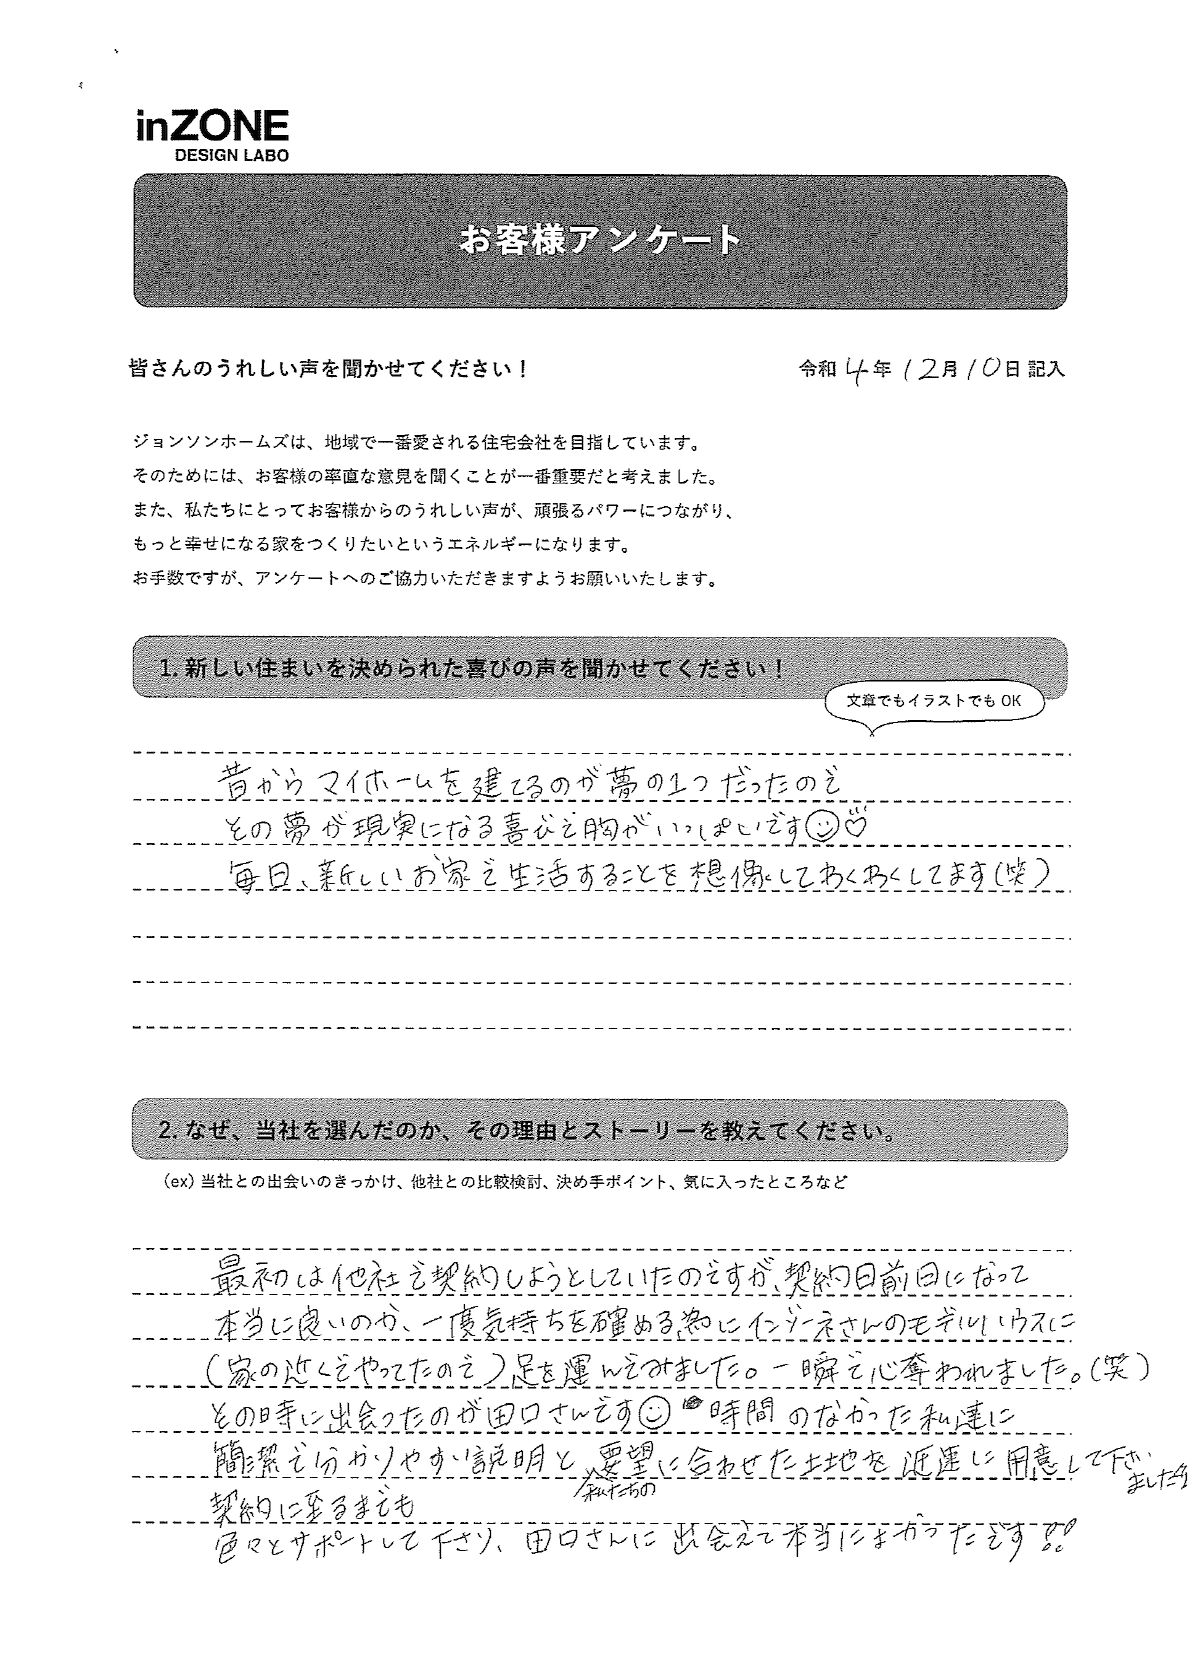 inZONE
DESIGN LABO
お客様アンケート
皆さんのうれしい声を聞かせてください！
令和 4年 12月 10日 記入
ジョンソンホームズは、地域で一番愛される住宅会社を目指しています。
そのためには、お客様の率直な意見を聞くことが一番重要だと考えました。
また、私たちにとってお客様からのうれしい声が、頑張るパワーにつながり、
もっと幸せになる家をつくりたいというエネルギーになります。
お手数ですが、アンケートへのご協力いただきますようお願いいたします。
1. 新しい住まいを決められた喜びの声を聞かせてください！
文章でもイラストでも OK
昔からマイホームを建てるのが夢の1つだったので
その夢が現実になる喜びで胸がいっぱいです
毎日、新しいお家で生活することを想像してわくわくしてます(笑)
2. なぜ、当社を選んだのか、その理由とストーリーを教えてください。
（ex）当社との出会いのきっかけ、他社との比較検討、決め手ポイント、気に入ったところなど
最初は他社で契約しようとしていたのですが、契約日前日になって
本当に良いのか、一度気持ちを確める為にインゾーネさんのモデルハウスに
(家の近くでやってたので)足を運んでみました。一瞬で心奪われました。(笑)
その時に出会ったのが田口さんです 時間のなかった私達に
簡潔で分かりやすい説明と、要望に合わせた土地を 迅速に用意して下さい
私たちの
ました
契約に至るまでも
色々とサポートして下さり、田口さんに出会えて本当によかったです!!